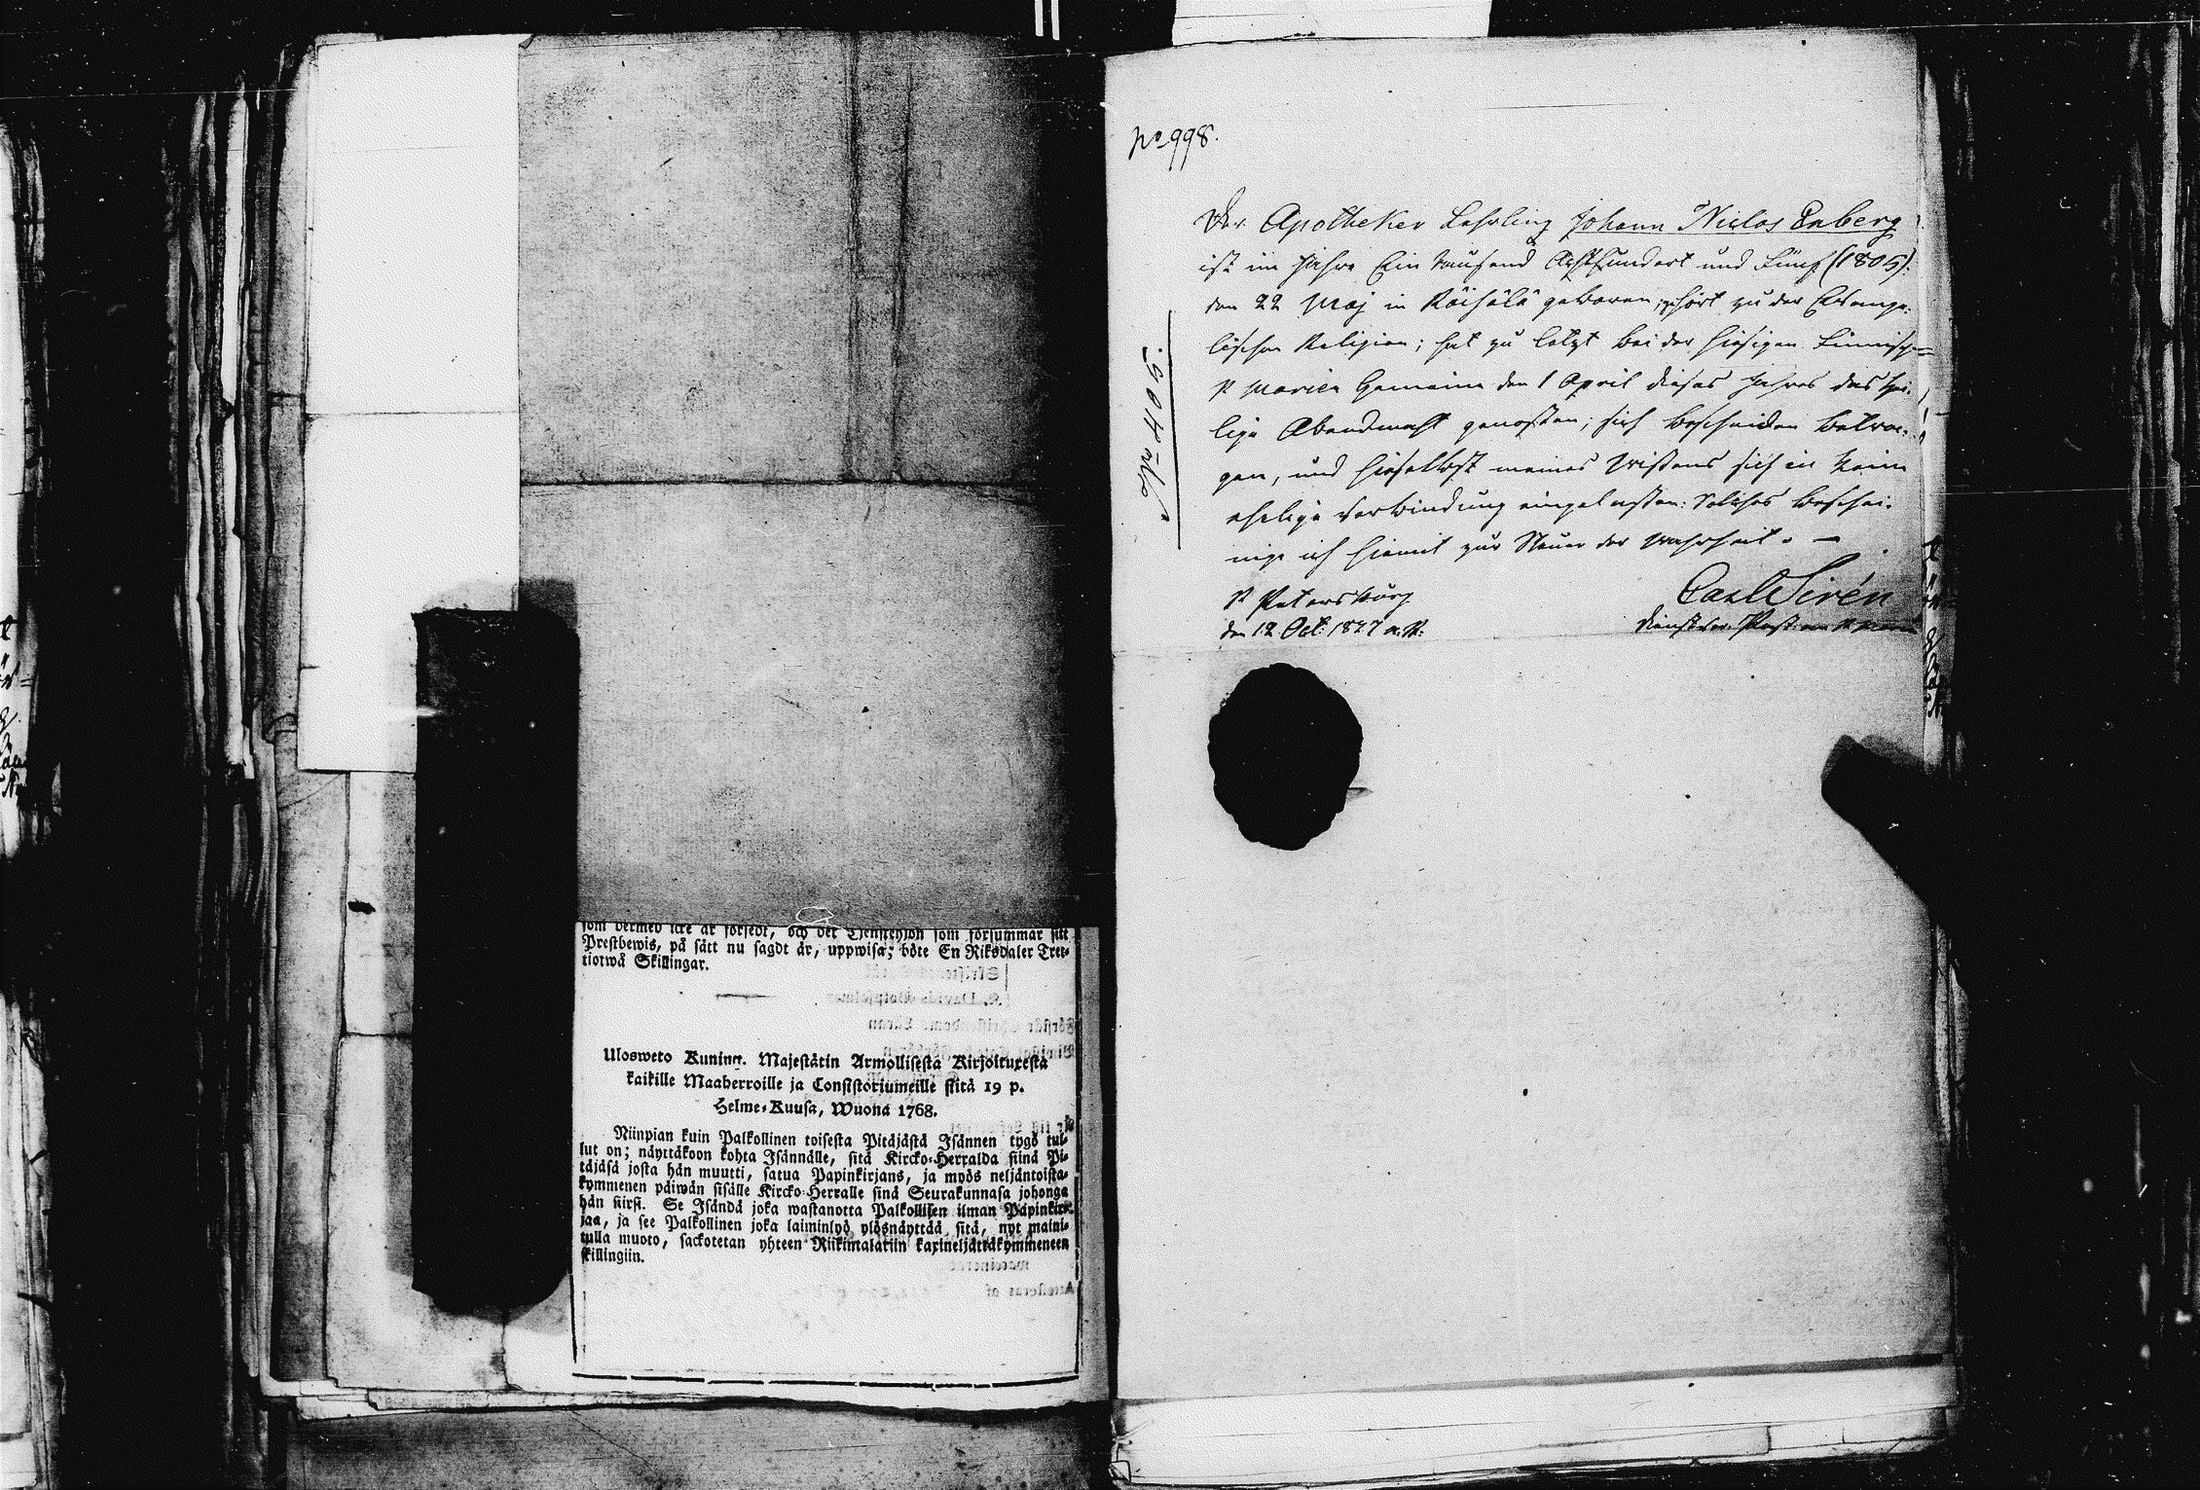 som dermed icke är försedt, och det Tjenstehjon som försummar sitt
Prestbewis, på sätt nu sagdt är, uppwisa; böte En Riksdaler Tret-
tiotwå Skillingar.
Ulosweto Kuning. Majestätin Armollisesta Kirjoituxesta
kaikille Maaherroille ja Consistoriumeille siitä 19 p.
Helme-Kuusa, Wuona 1768.
Niinpian kuin Palkollinen toisesta Pitäjästä Isännen tygö tul-
lut on; näyttäkoon kohta Isännälle, sitä Kircko-Herralda siinä Pi-
täjäsä josta hän muutti, satua Papinkirjans, ja myös neljäntoista-
kymmenen päiwän sisälle Kircko-Herralle sinä Seurakunnasa johonga
hän siirsi. Se Isändä joka wastanotta Palkollisen ilman Papinkir-
jaa, ja see Palkollinen joka laiminlyö ylösnäyttää sitä, nyt maini-
tulla muoto, sackotetan yhteen Riikintalariin kaxineljättäkymmeneen
skillingiin.
No 998.
No 405.
Der Apotheker Lehrling Johann Niclos Enberg
ist im Jahre Ein tausend Achthundert und Fünf (1805)
den 22 Maj in Räisälä geboren; gehört zu der Evange-
lischen Religion; hat zu letzt bei der hiesigen Finnisch=
St Marien Gemeine den 1 April dieses Jahres das hei-
lige Abendmahl genoßen; sich bescheiden betra-
gen, und hieselbst meines Wißens sich in keine
eheliche Verbindung eingelaßen. Solches beschei-
nige ich hiemit zur Steuer der Wahrheit. —
St Petersburg
den 12 Oct. 1827 a. St.
Carl Sirén